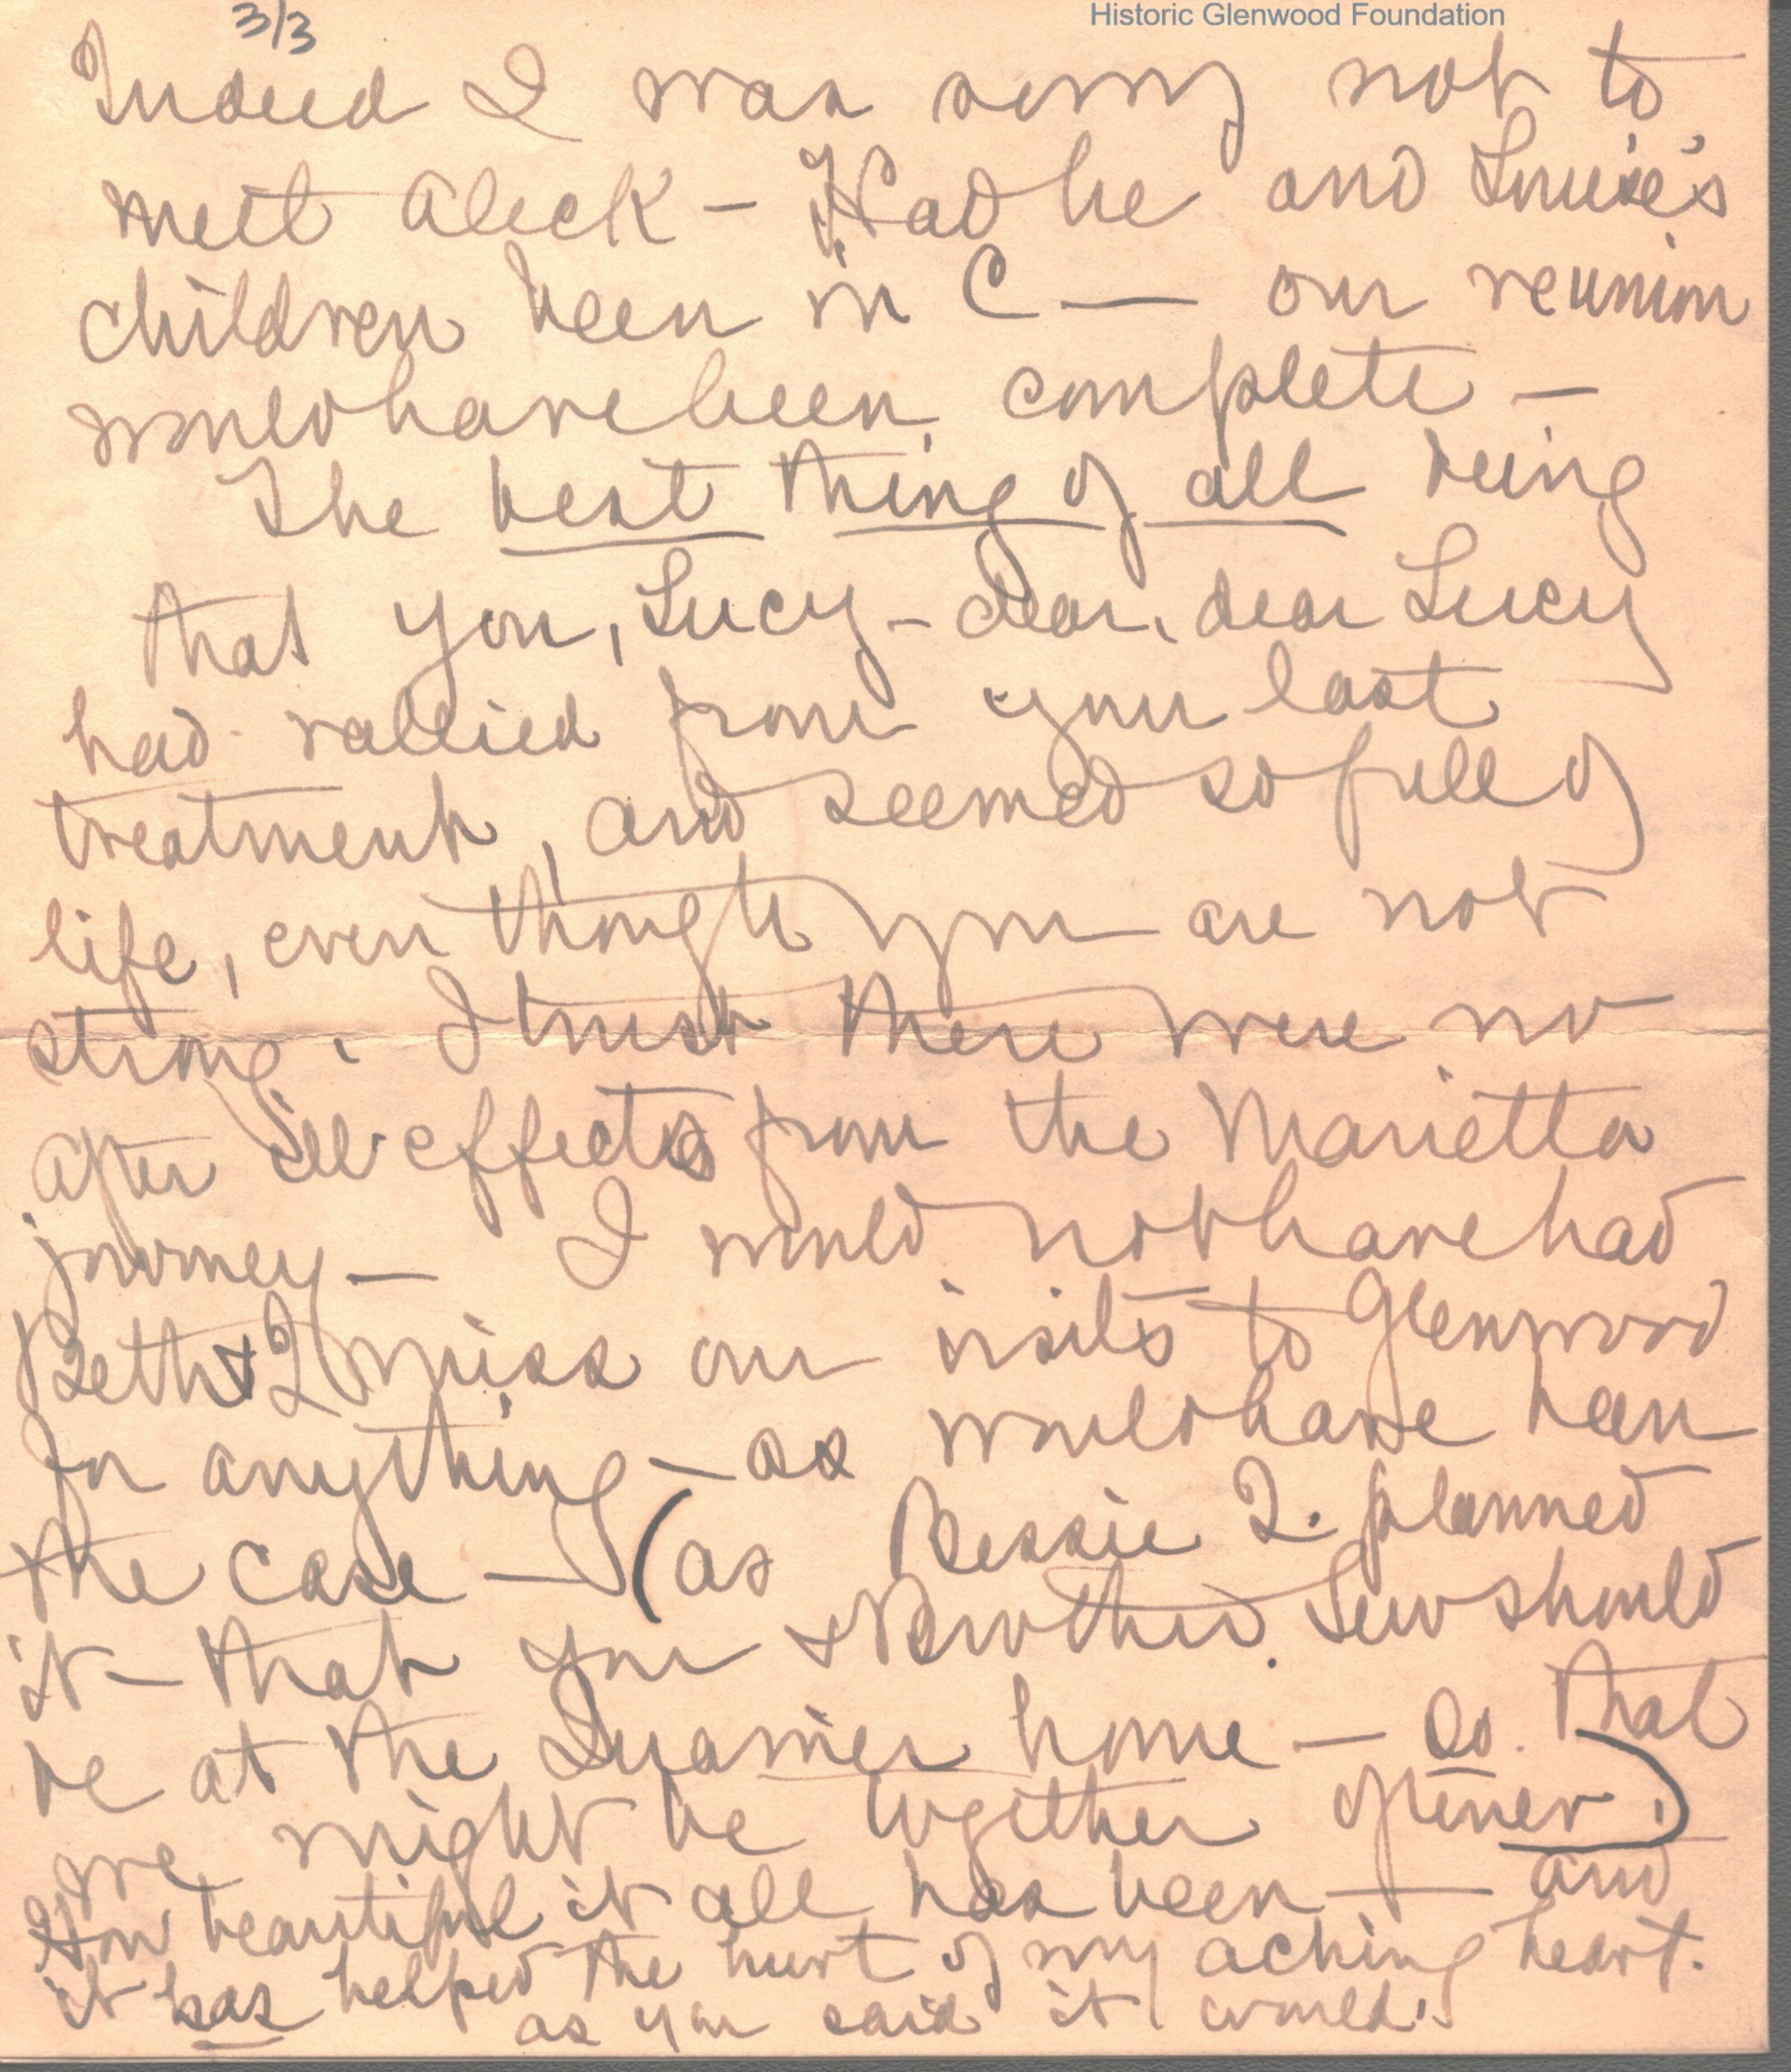 3/3
Historic Glenwood Foundation
Indeed I was sorry not to
meet Aleck – Had he and Louise's
children been in C — our reunion
would have been complete –
The best thing of all being
that you, Lucy – dear, dear Lucy
had rallied from your last
treatment, and seemed so full of
life, even though you are not
strong. I trust there were no
after ill effects from the Marietta
journey – I would not have had
Beth & I miss our visits to Glenwood
for anything – as would have been
the case – (as Bessie Q. planned
it – that you & Brother Lew should
be at the Quarrier home – so that
we might be together oftener.)
How beautiful it all has been — and
it has helped the hurt of my aching heart.
as you said it would.